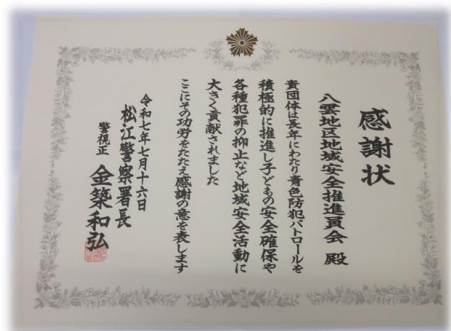 感謝状
八雲地区地域安全推進員会 殿
貴団体は長年にわたり青色防犯パトロールを
積極的に推進し子どもの安全確保や
各種犯罪の抑止など地域安全活動に
大きく貢献されました
ここにその功労をたたえ感謝の意を表します
令和七年七月十六日
松江警察署長
警視正 金築和弘